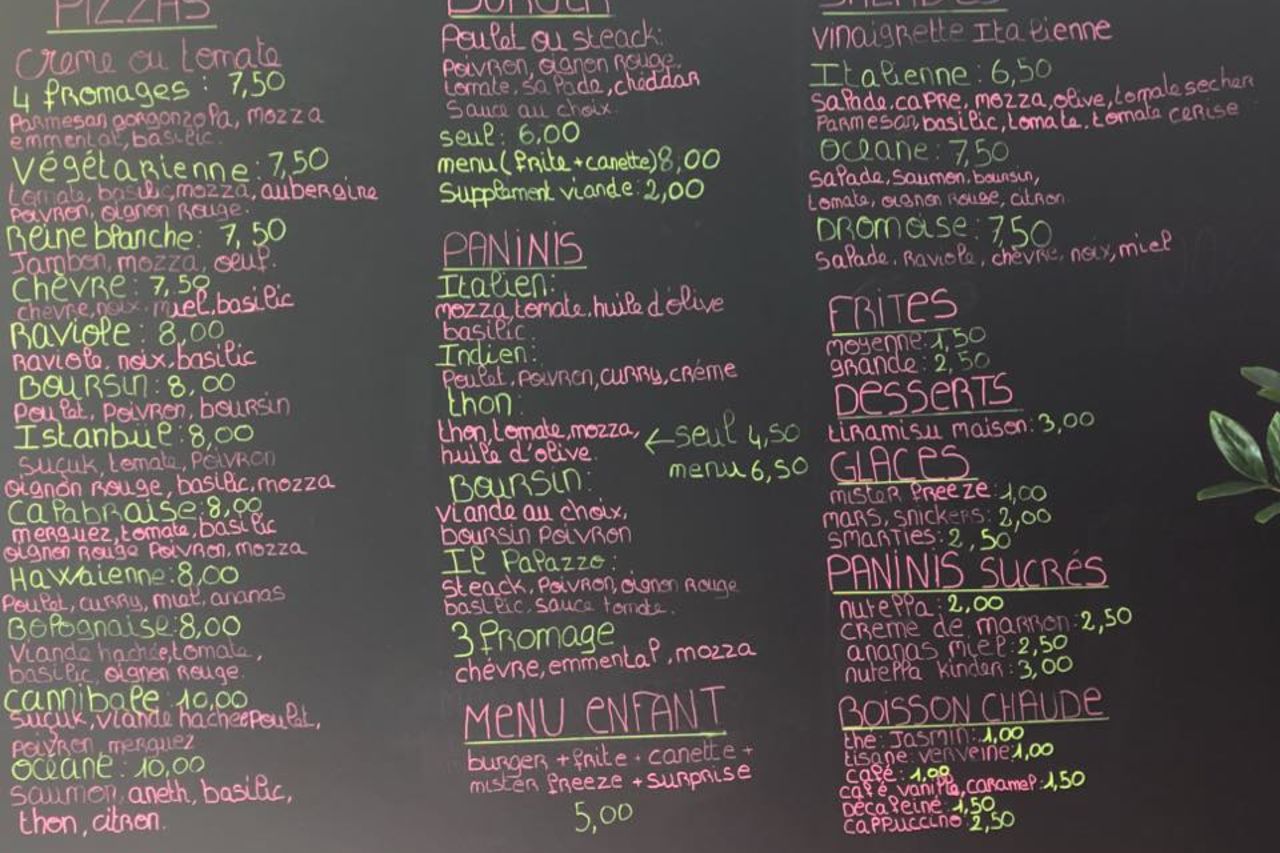 PIZZAS
Creme ou tomate
4 fromages : 7,50
Parmesan gorgonzola, mozza
emmental, basilic.
Végétarienne : 7,50
tomate, basilic, mozza, aubergine
Poivron, oignon Rouge.
Reine blanche : 7,50
Jambon, mozza, oeuf.
Chèvre : 7,50
chevre, noix, miel, basilic
Raviole : 8,00
Raviole, noix, basilic
Boursin : 8,00
Poulet, Poivron, boursin
Istanbul : 8,00
Suçuk, tomate, Poivron
oignon Rouge, basilic, mozza
Calabraise : 8,00
merguez, tomate, basilic
oignon Rouge Poivron, mozza
Hawaienne : 8,00
Poulet, curry, miel, ananas
Bolognaise : 8,00
Viande hachée, tomate,
basilic, oignon Rouge.
Cannibale : 10,00
Suçuk, viande hachée poulet,
poivron merguez
Océane : 10,00
saumon, aneth, basilic,
thon, citron.
BURGER
Poulet ou steack:
Poivron, oignon Rouge,
tomate, salade, cheddar
Sauce au choix.
seul : 6,00
menu (frite + canette) 8,00
Supplement viande : 2,00
PANINIS
Italien :
mozza, tomate, huile d'olive
basilic
Indien :
Poulet, Poivron, curry, créme
thon :
thon, tomate, mozza,
huile d'olive.
← seul 4,50
menu 6,50
Boursin :
viande au choix,
boursin Poivron
Il Palazzo :
Steack, Poivron, oignon Rouge
basilic, sauce tomate.
3 fromage
chévre, emmental, mozza
MENU ENFANT
burger + frite + canette +
mister freeze + surprise
5,00
SALADES
vinaigrette Italienne
Italienne : 6,50
Salade, capre, mozza, olive, tomate secher
Parmesan, basilic, tomate, tomate cerise
Oceane : 7,50
Salade, Saumon, boursin,
tomate, oignon Rouge, citron.
DROMOISE : 7,50
Salade, Raviole, chèvre, noix, miel
FRITES
moyenne : 1,50
grande : 2,50
DESSERTS
tiramisu maison : 3,00
GLACES
mister freeze : 1,00
mars, snickers : 2,00
smarties : 2,50
PANINIS SUCRÉS
nutella : 2,00
creme de marron : 2,50
ananas miel : 2,50
nutella kinder : 3,00
BOISSON CHAUDE
the Jasmin : 1,00
tisane verveine 1,00
café : 1,00
café vanille, caramel : 1,50
Décafeiné : 1,50
cappuccino : 2,50